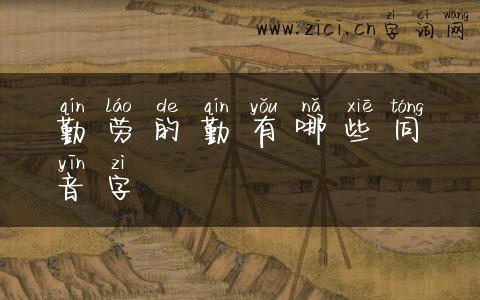 zì cí wǎng
www.zici.cn字词网
qín láo de qín yǒu nǎ xiē tóng
勤劳的勤有哪些同
yīn zì
音字